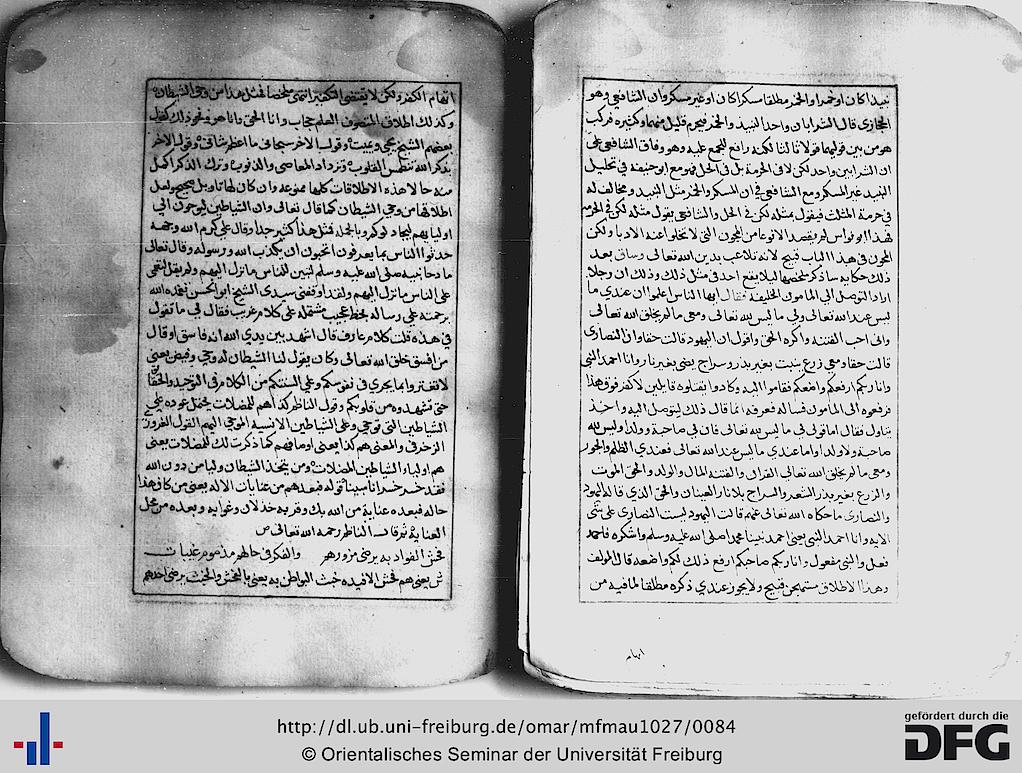 نبيذا كان او خمرا والخمر مطلقا مسكرا كان او غير مسكر وان الشافعي وهو
الحجازي قال الشرابان واحد النبيذ والخمر فيحرم قليل منهما وكثيره فركب
هو من بين قوليهما قولا ثالثا لكنه رافع للمجمع عليه وهو وفاق الشافعي على
ان الشرابين واحد لكن لا في الحرمة بل في الحل فهو مع ابو حنيفة في تحليل
النبيذ غير المسكر ومع الشافعي في ان المسكر والخمر مثل النبيذ ومخالف له
في حرمة المثلث فيقول بمثله لكن في الحل والشافعي يقول مثله لكن في الحرمة
فهذا ابو نواس لم يقصد الا نوعا من المجون التي لا تخلوا عنه الادبا ولكن
المجون في هذا الباب قبيح لانه تلاعب بدين الله تعالى وساق بعد
ذلك حكايه ساذكر ملخصها ليلا يقع احد في مثل ذلك وذلك ان رجلا
اراد التوصل الي المامون الخليفة فقال ايها الناس اعلموا ان عندي ما
ليس عند الله تعالى ولي ما ليس لله تعالى ومعي ما لم يخلق الله تعالى
واني احب الفتنه واكره الحق واقول ان اليهود قالت حقا وان النصارى
قالت حقا ومعي زرع ينبت بغير بذر وسراج يضي بغير نار وانا احمد النبي
وانا ربكم ارفعكم واضعكم فقاموا اليه وكادوا يقتلوه قايلين لا كفر فوق هذا
فرفعوه الى المامون فساله فعرفه انما قال ذلك ليتوصل اليه واخذ
يتاول فقال اما قولي لي ما ليس لله تعالى فان لي صاحبة وولدا وليس لله
صاحبة ولا ولد اما عندي ما ليس عند الله تعالى فعندي الظلم والجور
ومعي ما لم يخلق الله تعالى القران والفتنه المال والولد والحق الموت
والزرع بغير بذر الشعر والسراج بلا نار العينان والحق الذي قالته اليهود
والنصارى ما حكاه الله تعالى عنهم قالت اليهود ليست النصارى على شي
الايه وانا احمد النبي يعني احمد نبينا محمدا صلى الله عليه وسلم واشكره فاحمد
فعل والنبي مفعول وانا ربكم صاحبكم ارفع ذلك لكم واضعه قال المولف
وهذا الاطلاق مستهجن قبيح ولا يجوز عندي ذكره مطلقا لما فيه من
ايهام
ايهام الكفر ولكن لا يقتضي التكفير انتهى ملخصا فمثل هذا من وحي الشيطان
وكذلك اطلاق المتصوف العلم حجاب وانا الحق وانا هو فهو ذلك كقول
بعضهم الشيخ يحيي ويميت وقول الاخر سبحاني ما اعظم شاني وقول الاخر
بذكر الله تنطمس القلوب وتزداد المعاصي والذنوب وترك الذكر اكمل
منه حالا هذه الاطلاقات كلها ممنوعه وان كان لها تاويل صحيح ولعل
اطلاقها من وحي الشيطان كما قال تعالى وان الشياطين ليوحون الي
اوليايهم ليجادلوكم وبالجملة فمثل هذا كثير جدا وقال علي كرم الله وجهه
حدثوا الناس بما يعرفون اتحبون ان يكذب الله ورسوله وقال تعالى
صلى الله عليه وسلم لتبين للناس ما نزل اليهم ولم يقل لتلقي
على الناس ما نزل اليهم ولقد اوقفني سيدي الشيخ ابو الحسن تغمده الله
برحمته علي رساله بخط عجيب مشتملة على كلام غريب فقال لي ما تقول
في هذه قلت كلام عارف قال اشهد بين يدي الله انه فاسق او قال
من افسق خلق الله تعالى وكان يقول لنا الشيطان له وحي وفيض يعني
لا تغتروا بما يجري في نفوسكم وعلى السنتكم من الكلام في التوحيد والحقايق
حتى تشهدوه من قلوبكم وقول الناظر كذا هم للمضلات يحتمل عوده على
الشياطين التي توحي وعلى الشياطين الانسية الموحي اليهم القول الغرور
الزخرف والمعنى هم كذا يعني اوصافهم كما ذكرت لك للمضلات يعني
هم اولياء الشياطين المضلات ومن يتخذ الشيطان وليا من دون الله
فقد خسر خسرانا مبينا قوله فبعدهم من عنايات الاله يعني من كان هذا
حاله فبعده عناية من الله بك وقربه خذلان وغوايه وبعده من محل
العناية ثم قال الناظر رحمه الله تعالى ص
فحش الفواد به يرضى مزورهم والفكر في حالهم مذموم غيبات
ش يعني هم فحش الافيده خبث البواطن به يعني بالفحش والخبث يرضى احدهم
http://dl.ub.uni-freiburg.de/omar/mfmau1027/0084
© Orientalisches Seminar der Universität Freiburg
gefördert durch die
DFG